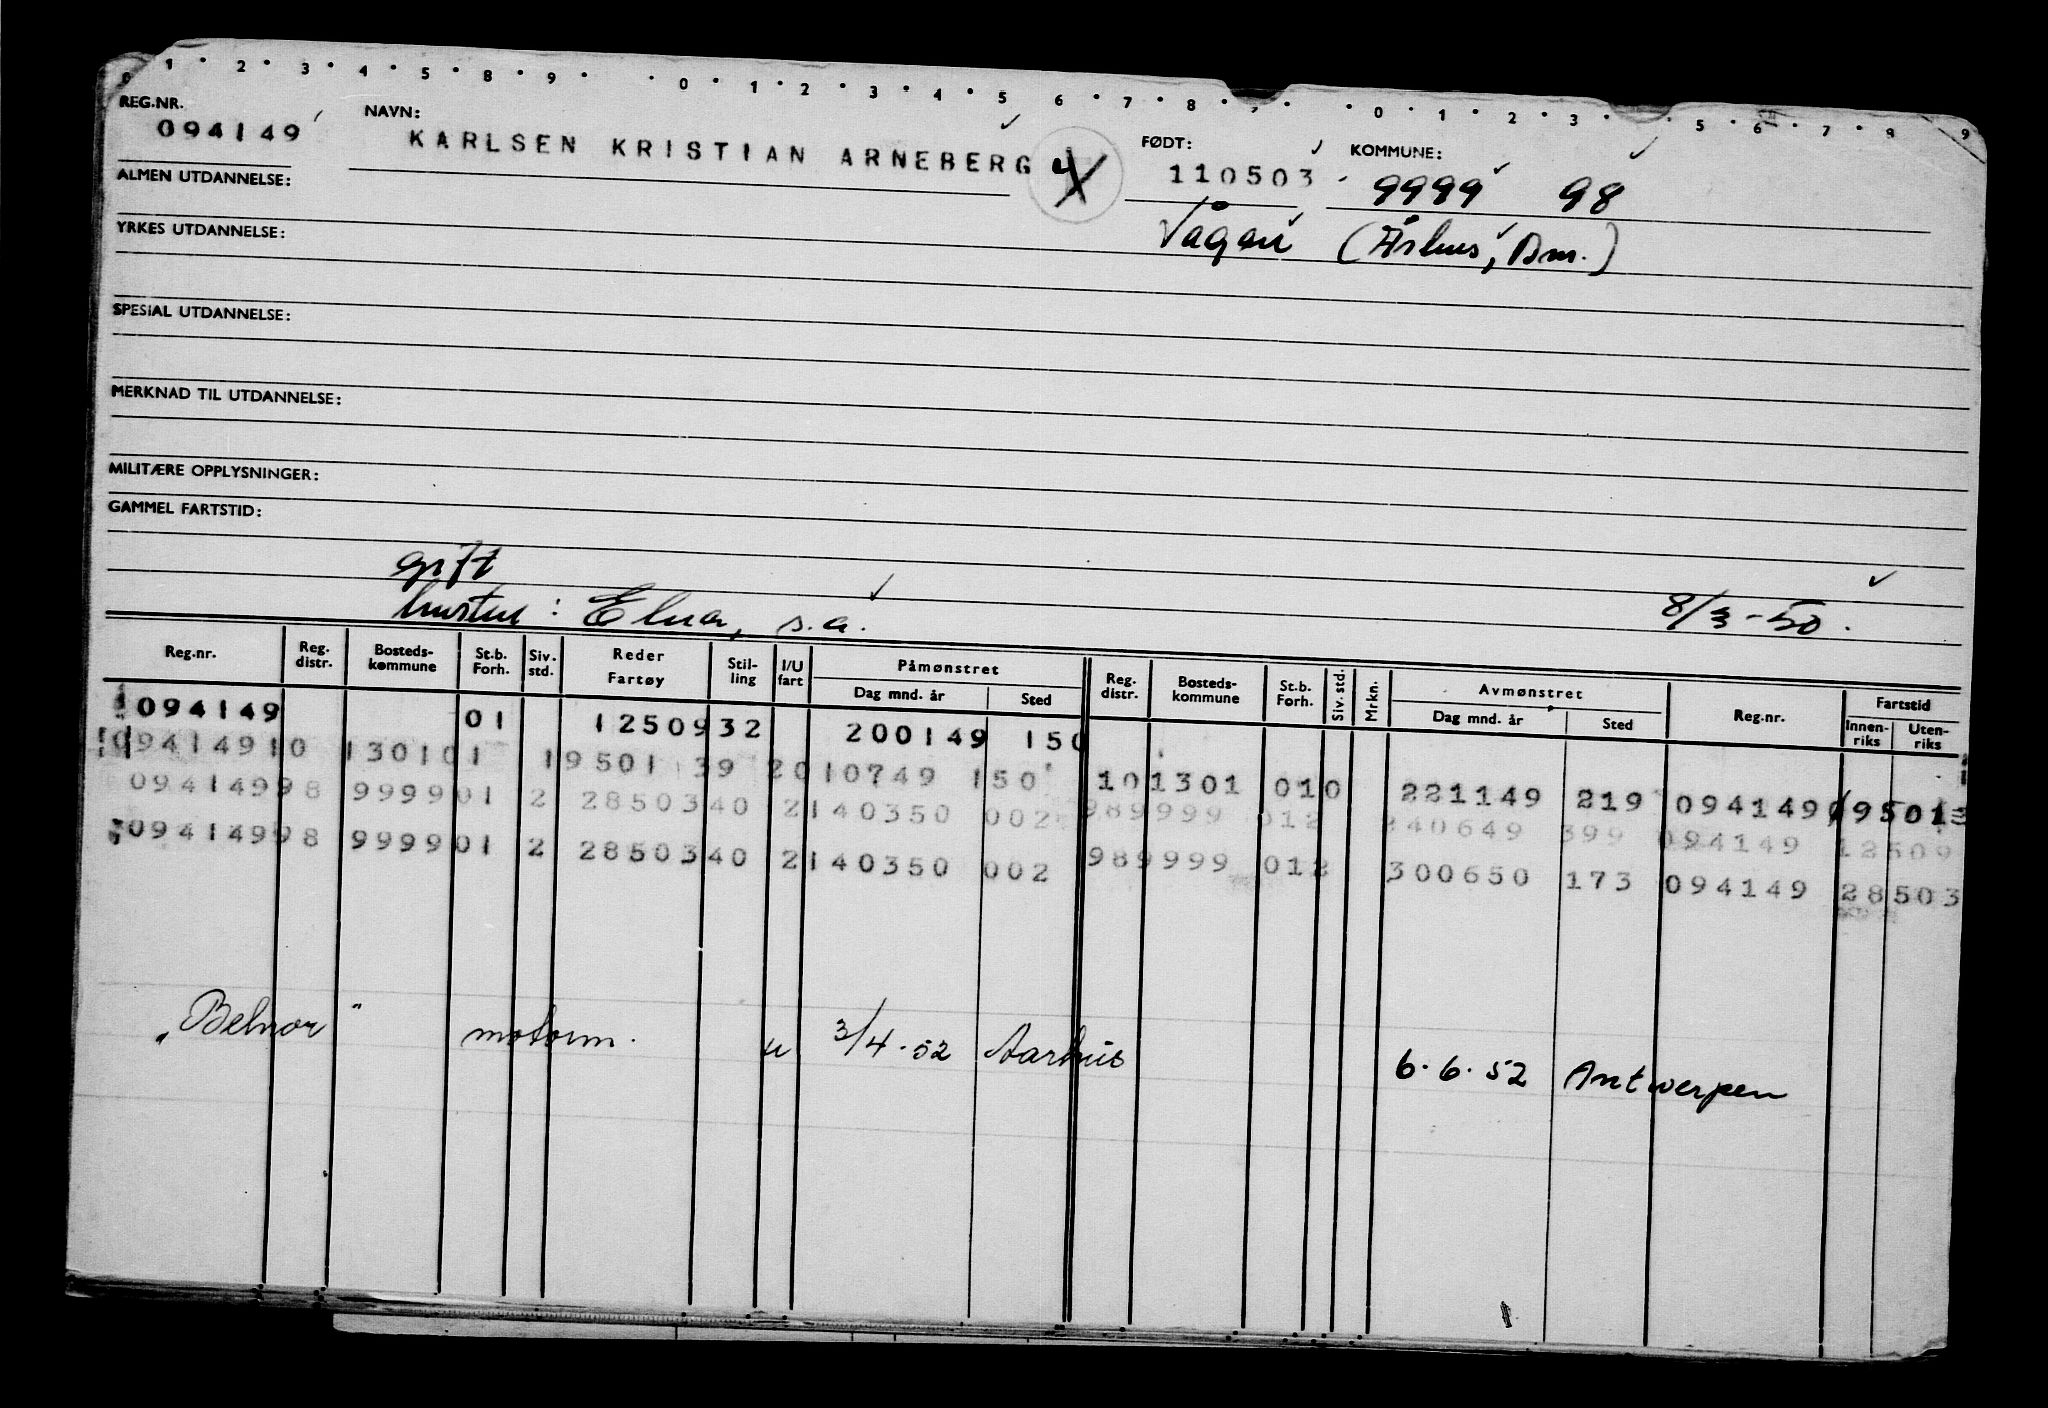 0 1 2 3 4 5 8 9 0 1 2 3 4 5 6 7 8 0 1 2 3 5 6 7 8 9
REG.NR. NAVN: FØDT: KOMMUNE:
094149 KARLSEN KRISTIAN ARNEBERG 110503 9999 98
ALMEN UTDANNELSE:
Vågan (Århus, Dm.)
YRKES UTDANNELSE:
SPESIAL UTDANNELSE:
MERKNAD TIL UTDANNELSE:
MILITÆRE OPPLYSNINGER:
GAMMEL FARTSTID:
gift
hustru: Elna, s.a. 8/3-50.
Reg.nr. Reg. distr. Bosteds-kommune St.b. Forh. Siv. std. Reder Fartøy Stil-ling I/U fart Påmønstret Dag mnd. år Sted Reg. distr. Bosteds-kommune St.b. Forh. Siv. std. Mrkn. Avmønstret Dag mnd. år Sted Reg.nr. Fartstid Innen-riks Uten-riks
094149 01 1250932 200149 150
09414910 130101 19501 39 2010749 150 101301 010 221149 219 094149 95013
09414998 999901 2 2850340 2140350 002 989999 012 40649 399 094149 12509
09414998 999901 2 2850340 2140350 002 989999 012 300650 173 094149 28503
"Belnor" motorm. u 3/4-52 Aarhus 6.6.52 Antwerpen